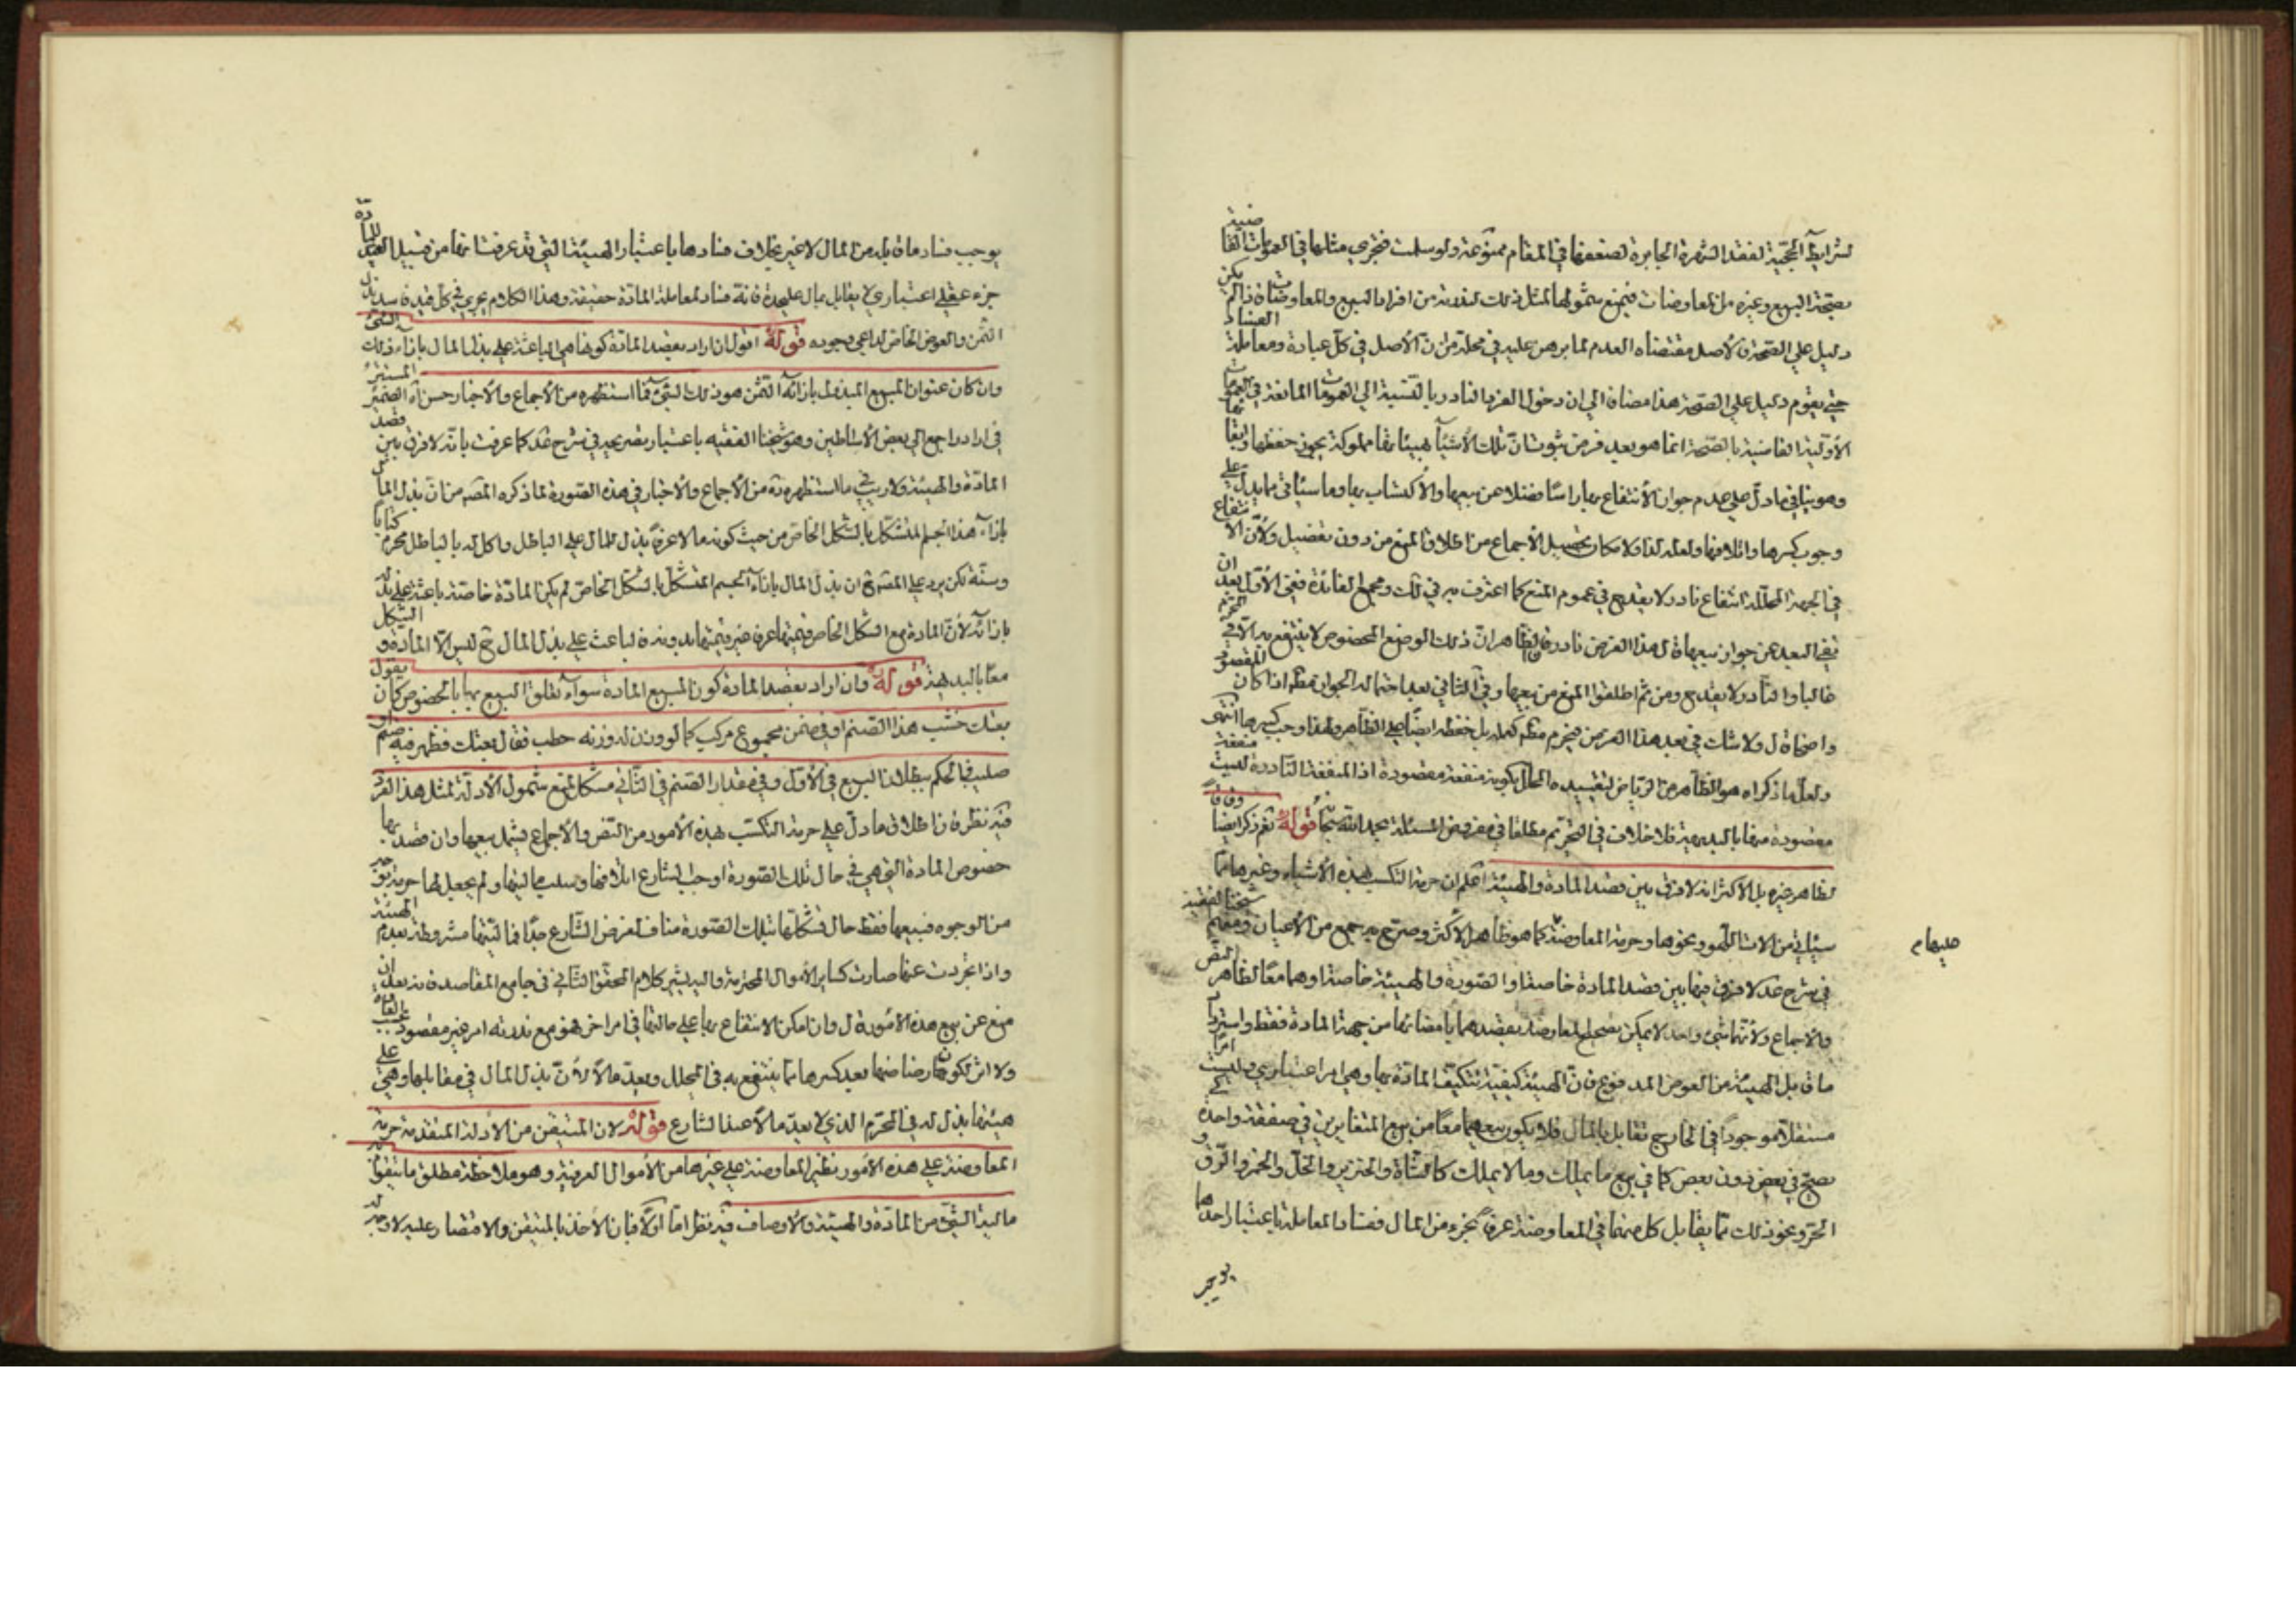 لشرايط الحجية لفقد الشهرة الجابرة لضعفها في المقام ممنوعة ولو سلمت فخبرى مثلها في العمومات القاضية
بصحة البيع وغيره من المعاوضات فيمنع شمولها لمثل ذلك لندرته من افراد البيع والمعاوضات فاذا لم يكن
دليل على الصحة فالاصل مقتضاه العدم لما برهن عليه في محله من ان الاصل في كل عبادة ومعاملة الفساد
حتى يقوم دليل على الصحة هذا مضافا الى ان دخول الفرد النادر بالنسبة الى العمومات المانعة في العمومات
الأولية القاضية بالصحة انما هو بعد فرض ثبوت ان تلك الأشياء بهيئاتها مملوكة يجوز حفظها وابقائها
وهو ينافي ما دل على عدم جواز الأنتفاع بها راسا فضلا عن بيعها والأكتساب بها وما سياتي مما يدل على
وجوب كسرها واتلافها ولعله لذا ولامكان تحصيل الأجماع من اطلاق المنع من دون تفصيل ولأن الأنتفاع
في الجهة المحللة انتفاع نادر ولا يقدح في عموم المنع كما اعترف به في لك ومجمع الفائدة ففي الأول بعد ان
نفى البعد عن جواز بيعها قال هذا الفرض نادر فان الظاهر ان ذلك الوضع المخصوص لا ينتفع به الا في المحرم
غالبا والنادر لا يقدح ومن ثم اطلقوا المنع من بيعها وفي الثاني بعد احتماله الجواز
واضحا قال ولا شك في بعد هذا الفرض فيحرم بل حفظه ايضا على الظاهر ولهذا وجب كسرها انتهى
ولعل ما ذكراه هو الظاهر من الرياض لتقييده المحلل بكونه منفعة مقصودة اذ المنفعة النادرة ليست منفعة
مقصودة منها بالبديهة فلا خلاف في التحريم مطلقا في مفروض المسئلة بحمد الله سبحانه قوله نعم ذكر ايضا وفاقا
لظاهر غيره بل الاكثر انه لا فرق بين قصد المادة والهيئة اعلم ان حرمة التكسب بهذه الأشياء وغيرها مما
سياتي من الات اللهو ونحوها وحرمة المعاوضة عليها كما هو ظاهر الأكثر وصرح به جمع من الأعيان ومنهم شيخنا الفقيه
في شرح عد لا فرق فيها بين قصد المادة خاصة او الصورة والهيئة خاصة او هما معا لظاهر النص
والأجماع ولأنهما شيء واحد لا يمكن تصحيح المعاوضة بقصدهما بامضائها من جهة المادة فقط واسترداد
ما قابل الهيئة من العوض المدفوع فان الهيئة كيفية تتكيف المادة بها وهي امر اعتباري وليست امرا
مستقلا موجودا في الخارج تقابل بالمال فلا يكون بيعهما معا من بيع المتغايرين في صفقة واحدة كي
يصح في بعض دون بعض كما في بيع ما يملك وما لا يملك كالشاة والخنزير والخل والخمر والرق و
الحر ونحو ذلك مما يقابل كل منهما في المعاوضة عرفا بجزء من المال ففساد المعاملة باعتبار احدها
يوجب
يوجب فساد ما قابله من المال لا غير بخلاف فسادها باعتبار الهيئة التي قد عرفت انها من قبيل القيد للمادة
جزء عقلي اعتباري لا يقابل بمال عليحدة فانه فساد لمعاملة المادة حقيقة وهذا الكلام يجري في كل قيد فاسد بذل
الثمن والعوض الخاص لداعي وجوده قوله اقول ان اراد بقصد المادة كونها هي الباعثة على بذل المال بازاء ذلك الشئ
وان كان عنوان المبيع المبذول بازائه الثمن هو ذلك الشئ فما استظهره من الأجماع والأخبار حسن اه الضمير المستتر
في اراد راجع الى بعض الأساطين وهو شيخنا الفقيه باعتبار تصريحه في شرح عد كما عرفت بانه لا فرق بين قصد
المادة والهيئة ولا ريب في ما استظهره ره من الأجماع والأخبار في هذه الصورة لما ذكره المصنف من ان بذل المال
بازاء هذا الجسم المتشكل بالشكل الخاص من حيث كونه مالا عرفا بذل للمال على الباطل واكل له بالباطل محرم كتابا
وسنة لكن يرد على المصنف ح ان بذل المال بازاء الجسم المتشكل بالشكل الخاص لم يكن المادة خاصة باعثة على بذله
بازائه لأن المادة مع الشكل الخاص قيمتها عرفا غير قيمتها بدونه فالباعث على بذل المال ح ليس الا المادة و الشكل
معا بالبديهة قوله وان اراد بقصد المادة كون المبيع المادة سواء تعلق البيع بها بالخصوص كان يقول
بعتك خشب هذا الصنم او في ضمن مجموع مركب كما لو وزن له وزنه حطب فقال بعتك فظهر فيه صنم او
صليب فالحكم ببطلان البيع في الأول وفي مقدار الصنم في الثاني مشكل لمنع شمول الأدلة لمثل هذا الفرد
فيه نظر فان اطلاق ما دل على حرمة التكسب بهذه الأمور من النص والأجماع يشمل بيعها وان قصد بها
خصوص المادة التي هي في حال تلك الصورة اوجب الشارع اتلافها وسلب ماليتها ولم يجعل لها حرمة بوجه
من الوجوه فبيعها فقط حال تشكلها بتلك الصورة مناف لغرض الشارع جدا فماليتها مشروطة بعدم الهيئة
واذا تجردت عنها صارت كساير الأموال المحترمة واليه يشير كلام المحقق الثاني في جامع المقاصد فانه بعد ان
منع عن بيع هذه الأمور قال وان امكن الانتفاع بها على حالتها في امر اخر فهو مع ندرته امر غير مقصود غالبا
ولا اثر لكون رضاضها بعد كسرها مما ينتفع به في المحلل ويعد مالا لأن بذل المال في مقابلها وهي على
هيئتها بذل له في المحرم الذي لا يعد مالا عند الشارع قوله لان المتيقن من الأدلة المتقدمة حرمة
المعاوضة على هذه الأمور نظير المعاوضة على غيرها من الأموال العرفية وهو ملاحظة مطلق ما يتقوم به
مالية الشئ من المادة والهيئة والأوصاف فيه نظر اما اولا فبان الأخذ بالمتيقن والاقتصار عليه لا وجه له